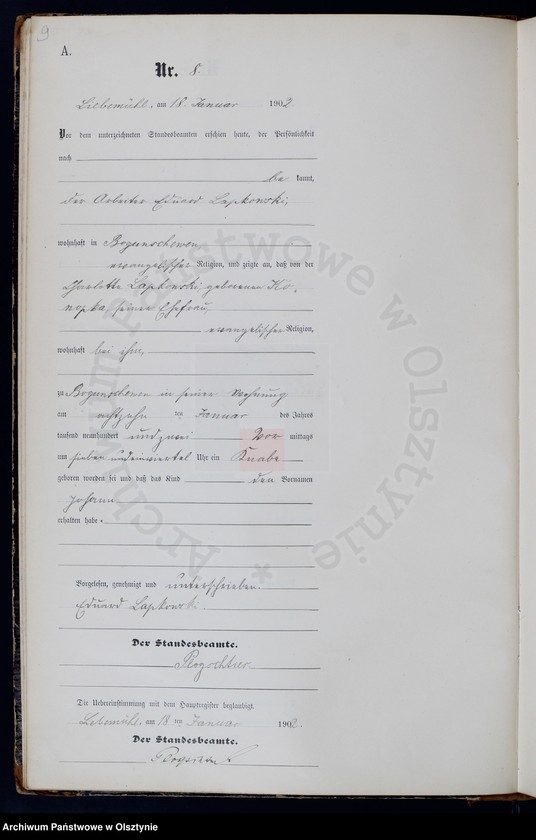 9
A.
Nr. 8.
Liebemühl, am 18. Januar 1902
Vor dem unterzeichneten Standesbeamten erschien heute, der Persönlichkeit
nach
be kannt,
der Arbeiter Eduard Lapkowski,
wohnhaft in Bogunschewen,
evangelischer Religion, und zeigte an, daß von der
Charlotte Lapkowski, geborenen Ko-
nopka, seiner Ehefrau,
evangelischer Religion,
wohnhaft bei ihm,
zu Bogunschewen in seiner Wohnung
am achtzehn ten Januar des Jahres
tausend neunhundert und zwei Vor mittags
um sieben und ein viertel Uhr ein Knabe
geboren worden sei und daß das Kind den Vornamen
Johann
erhalten habe.
Vorgelesen, genehmigt und unterschrieben.
Eduard Lapkowski.
Der Standesbeamte.
Die Uebereinstimmung mit dem Hauptregister beglaubigt.
Liebemühl, am 18 ten Januar 1902.
Der Standesbeamte.
Archiwum Państwowe w Olsztynie *
Archiwum Państwowe w Olsztynie